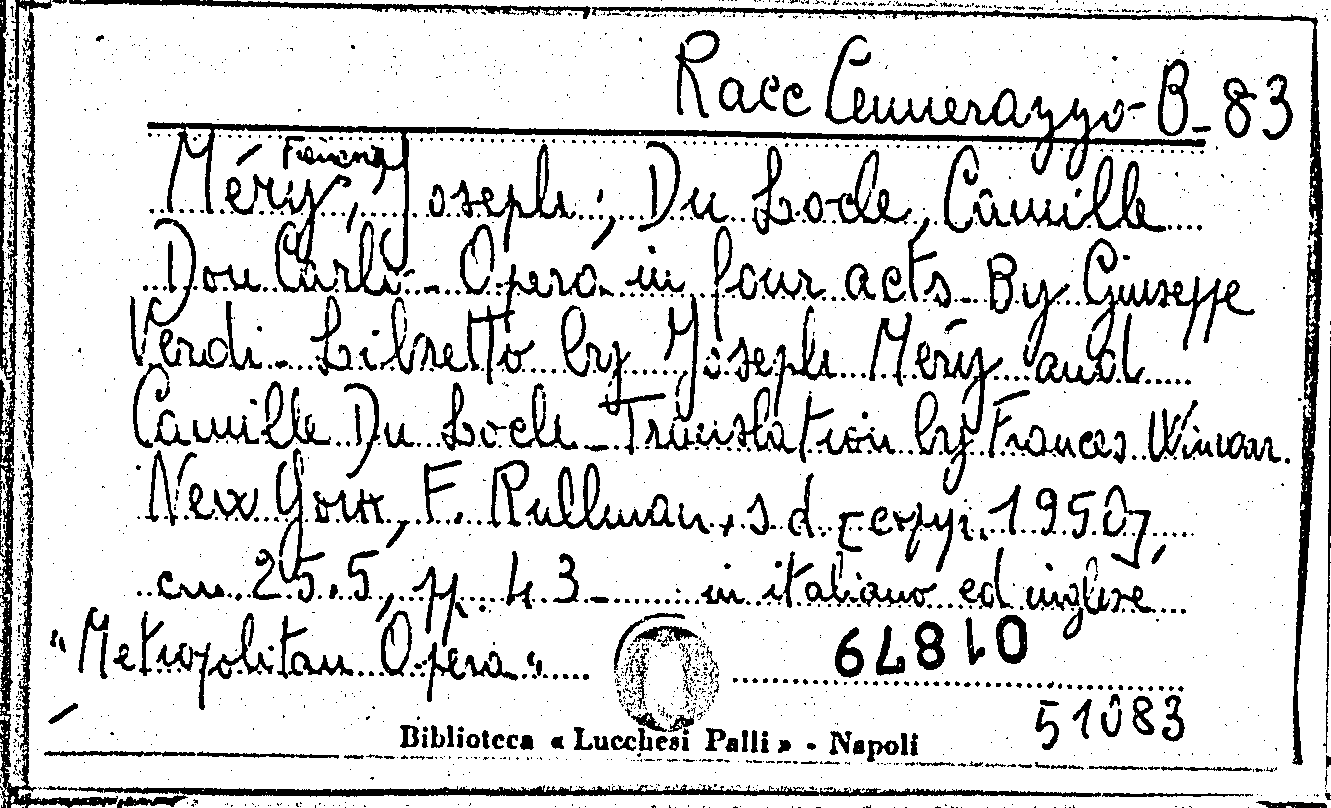 Racc Cennerazzo - B - 83
Méry, François Joseph; Du Locle, Camille
Don Carlo - Opera in four acts - By Giuseppe
Verdi - Libretto by Joseph Méry and
Camille Du Locle - Translation by Frances Winwar.
New York, F. Rullman, s d [copyr. 1950],
cm. 25.5, pp. 43 - in italiano ed inglese
"Metropolitan Opera"
64810
51083
Biblioteca « Lucchesi Palli » - Napoli